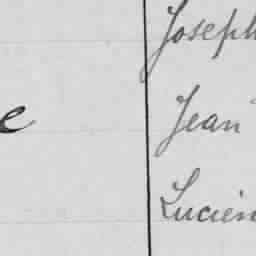 Joseph
e Jean
Lucien